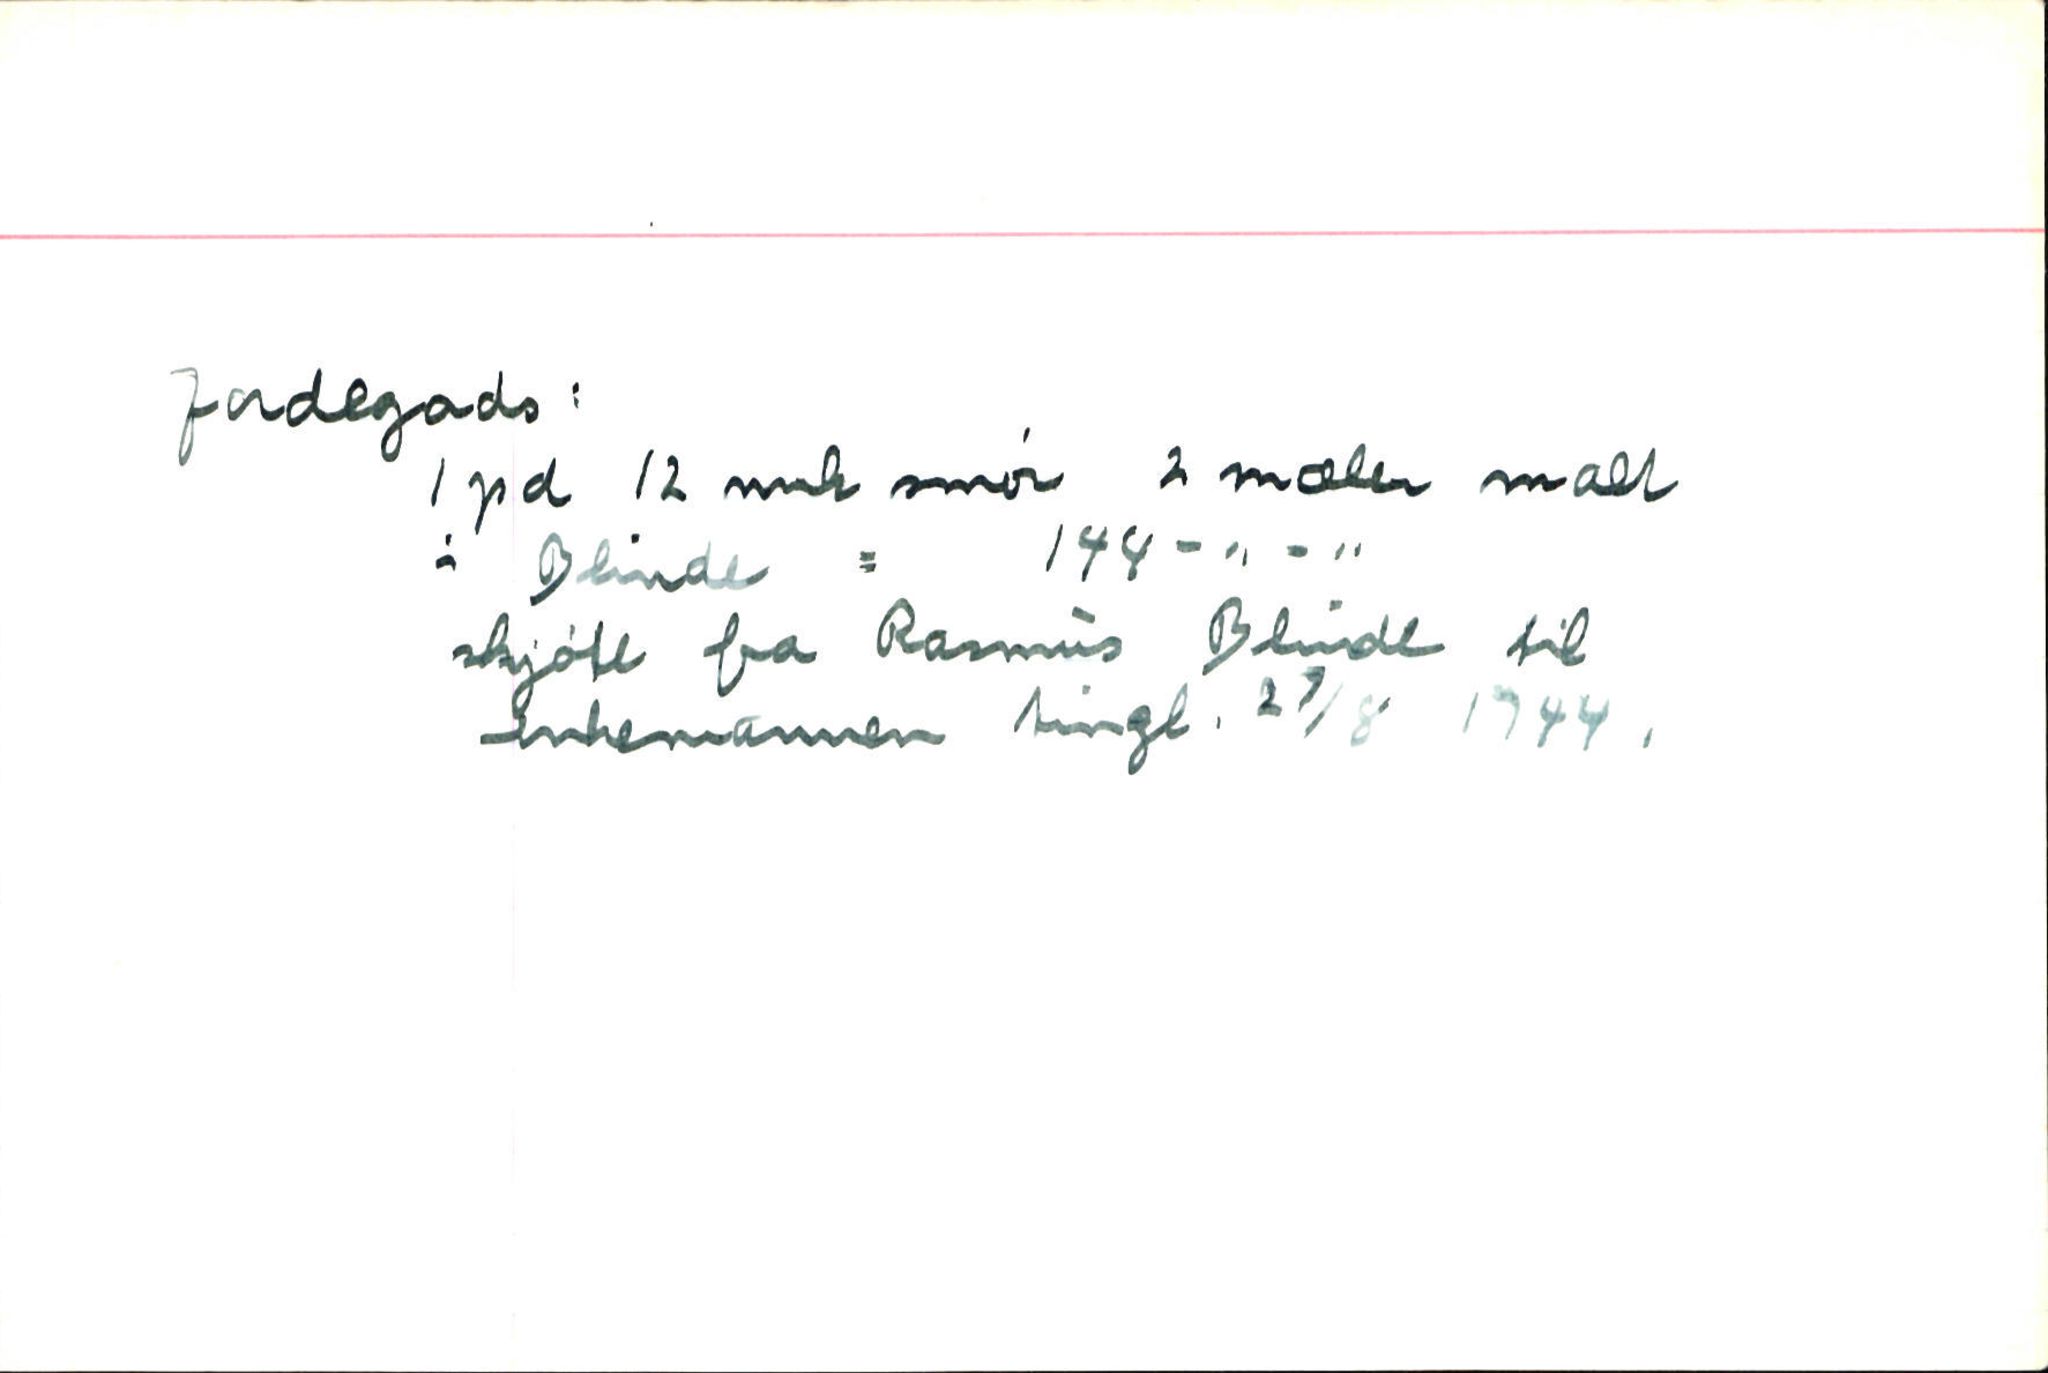 Jordegods:
1 pd 12 mrk smör 2 mæler malt
i Blinde = 144 - " - "
skjöte fra Rasmus Blinde til
enkemannen tingl. 27/8 1744.